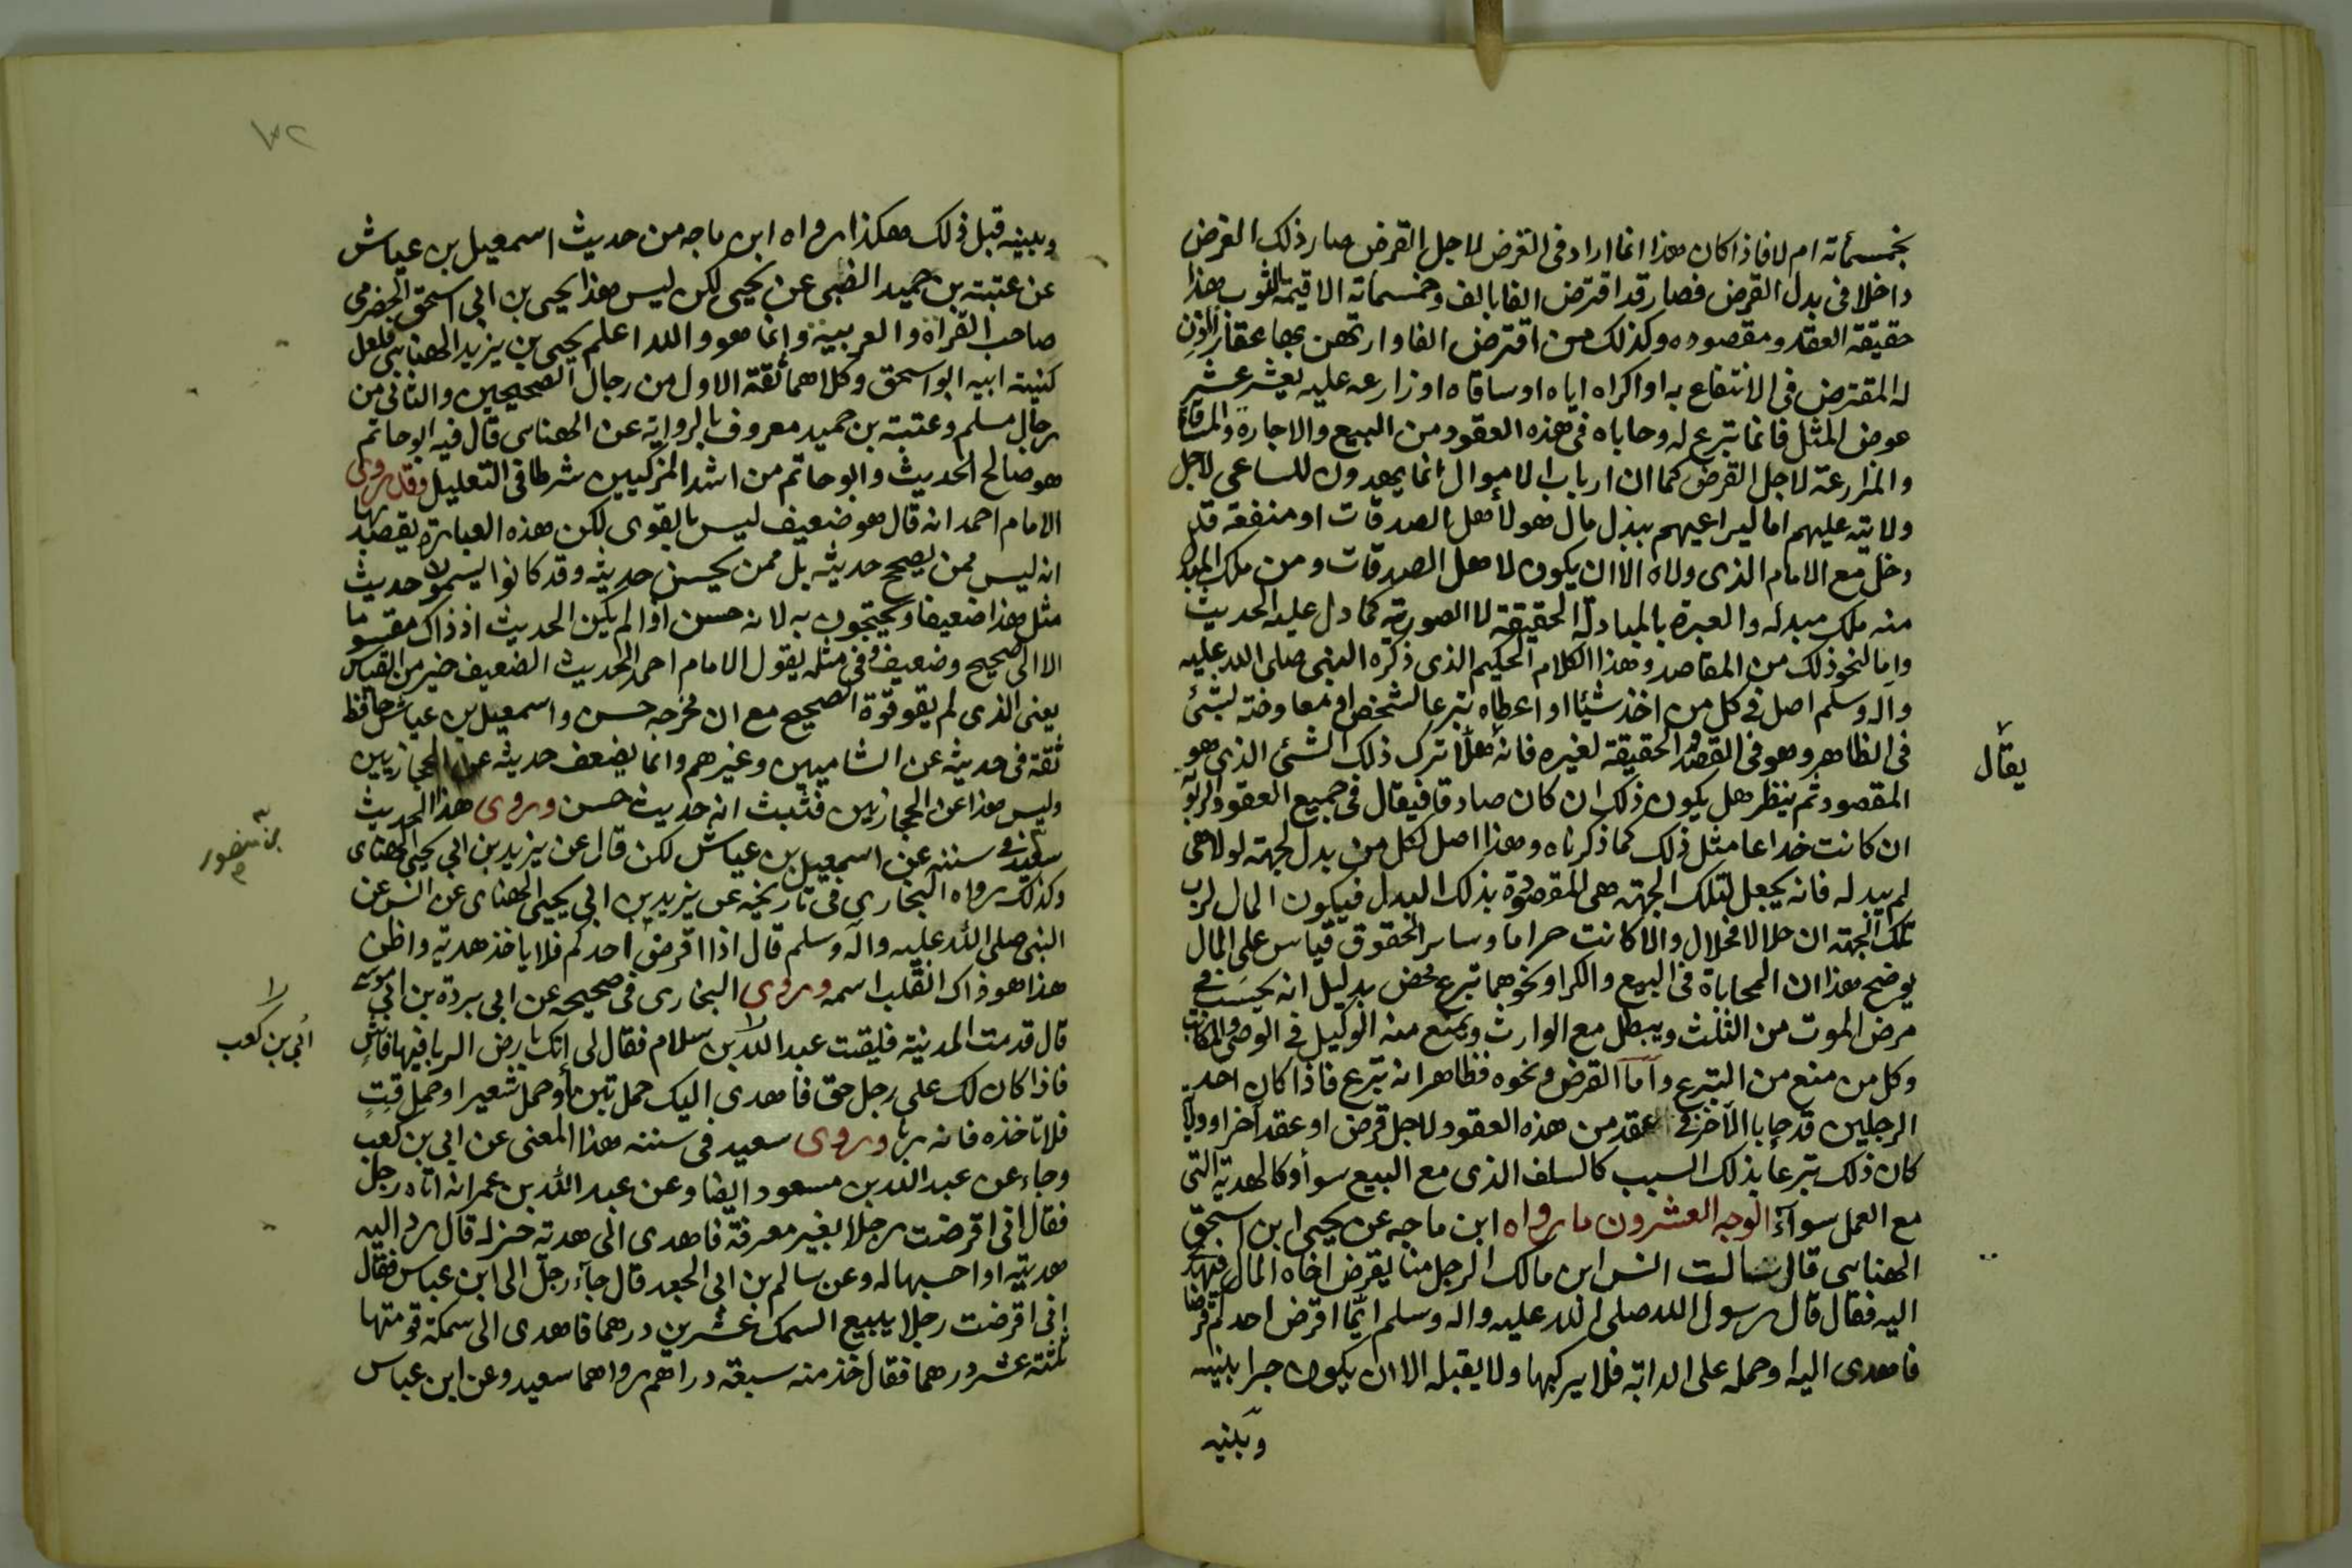 بخمسمأته ام لا فاذا كان هذا انما اراد فى القرض لاجل القرض صار ذلك القرض
داخلا فى بدل القرض فصار قد اقترض الفا بالف وخمسماته الا قيمة الثوب هذا
حقيقة العقد ومقصوده وكذلك من اقترض الفا وارتهن بها عقار اذن
له المقترض فى الانتفاع به او اكراه اياه او ساقاه او زارعه عليه بعشر عشر
عوض المثل فانما تبرع له وحاباه فى هذه العقود من البيع والاجارة والمساقاة
والمزارعة لاجل القرض كما ان ارباب الاموال انما يهدون للساعى لاجل
ولايته عليهم اما ليراعيهم ببذل مال هو لأهل الصدقات او منفعة قد
دخل مع الامام الذى ولاه الا ان يكون لاهل الصدقات ومن ملك المبدل
منه ملك مبدله والعبرة بالمبادلة الحقيقة لا الصورية كما دل عليه الحديث
واما لنحو ذلك من المقاصد وهذا الكلام الحكيم الذى ذكره النبى صلى الله عليه
وآله وسلم اصل فى كل من اخذ شيئا او اعطاه تبرعا لشخص او معاوضة لشئ
فى الظاهر وهو فى القصد والحقيقة لغيره فانه هلا ترك ذلك الشئ الذى هو
يقال
المقصود ثم ينظر هل يكون ذلك ان كان صادقا فيقال فى جميع العقود الربوية
ان كانت خداعا مثل ذلك كما ذكرناه وهذا اصل لكل من بدل لجهته لولا هى
لم يبدله فانه يجعل لتلك الجهته هى المقصودة بذلك البدل فيكون المال لرب
تلك الجهته ان حلالا فحلال والا كانت حراما وساير الحقوق قياس على المال
يوضح هذا ان المحاباة فى البيع والكرا ونحوهما تبرع محض بدليل انه يحسب فى
مرض الموت من الثلث ويبطل مع الوارث ويمنع منه الوكيل فى الوصى والمكاتب
وكل من منع من التبرع وأما القرض ونحوه فظاهر انه تبرع فاذا كان احد
الرجلين قد حابا الآخر فى عقد من هذه العقود لاجل قرض او عقد آخر او ولاية
كان ذلك تبرعا بذلك السبب كالسلف الذى مع البيع سوأ وكالهدية التى
مع العمل سوآء الوجه العشرون ما رواه ابن ماجه عن يحيى ابن اسحق
الهناسى قال سالت انس ابن مالك الرجل منا يقرض اخاه المال فيهدى
اليه فقال قال رسول الله صلى الله عليه واله وسلم ايما اقرض احدكم قرضا
فاهدى اليه او حمله على الدابة فلا يركبها ولا يقبله الا ان يكون جرا بلنيه
وبلنيه
٧٢
وبلينه قبل ذلك هكذا رواه ابن ماجه من حديث اسمعيل بن عياش
عن عتبته بن حميد الضبى عن يحيى لكن ليس هذا يحيى بن ابى اسحق الحضرمى
صاحب القراة والعربية وانما هو والله اعلم يحيى بن يزيد الهناسى فلعل
كنيته ابيه ابو اسحق وكلاهما ثقة الاول من رجال الصحيحين والثانى من
رجال مسلم وعتبته بن حميد معروف بالرواية عن الهناسى قال فيه ابو حاتم
هو صالح الحديث وابو حاتم من اشد المزكيين شرطا فى التعليل وقد روى
الامام احمد انه قال هو ضعيف ليس بالقوى لكن هذه العبارة يقصد بها
انه ليس ممن يصحح حديثه بل ممن يحسن حديثه وقد كانوا ليسموا حديث
مثل هذا ضعيفا ويحتجون به لانه حسن اذا لم يكن الحديث اذ ذاك مقسوما
الا الى صحيح وضعيف وفى مثله يقول الامام احمد الحديث الضعيف خير من القياس
يعنى الذى لم يقو قوة الصحيح مع ان مخرجه حسن واسمعيل بن عياش حافظ
ثقة فى حديثه عن الشاميين وغيرهم وانما يضعف حديثه عن الحجازيين
وليس هذا عن الحجازيين فثبت انه حديث حسن وروى هذا الحديث
سعيد فى سننه عن اسمعيل بن عياش لكن قال عن يزيد بن ابى يحيى الهناى
بن منصور
وكذلك رواه البخارى فى تاريخه عن يزيد بن ابى يحيى الهناى عن انس عن
النبى صلى الله عليه وآله وسلم قال اذا اقرض احدكم فلا ياخذ هدية واظن
هذا هو ذاك انقلب اسمه وروى البخارى فى صحيحه عن ابى بردة بن ابى موسى
قال قدمت المدنية فليقت عبد الله بن سلام فقال لى انك بارض الربا فيها فاش
أبي بن كعب
فاذا كان لك على رجل حق فاهدى اليك حمل تبن أو حمل شعير او حمل قت
فلا تاخذه فانه ربا وروى سعيد فى سننه هذا المعنى عن ابى بن كعب
وجاء عن عبد الله بن مسعود ايضا وعن عبد الله بن عمر انه اتاه رجل
فقال انى اقرضت رجلا بغير معرفة فاهدى الى هدية جزله قال رد اليه
هديته او احسبها له وعن سالم بن ابى الجعد قال جآء رجل الى ابن عباس فقال
انى اقرضت رجلا يبيع السمك عشرين درهما فاهدى الى سمكة قومتها
ثلثة عشر درهما فقال خذ منه سبعة دراهم رواهما سعيد وعن ابن عباس